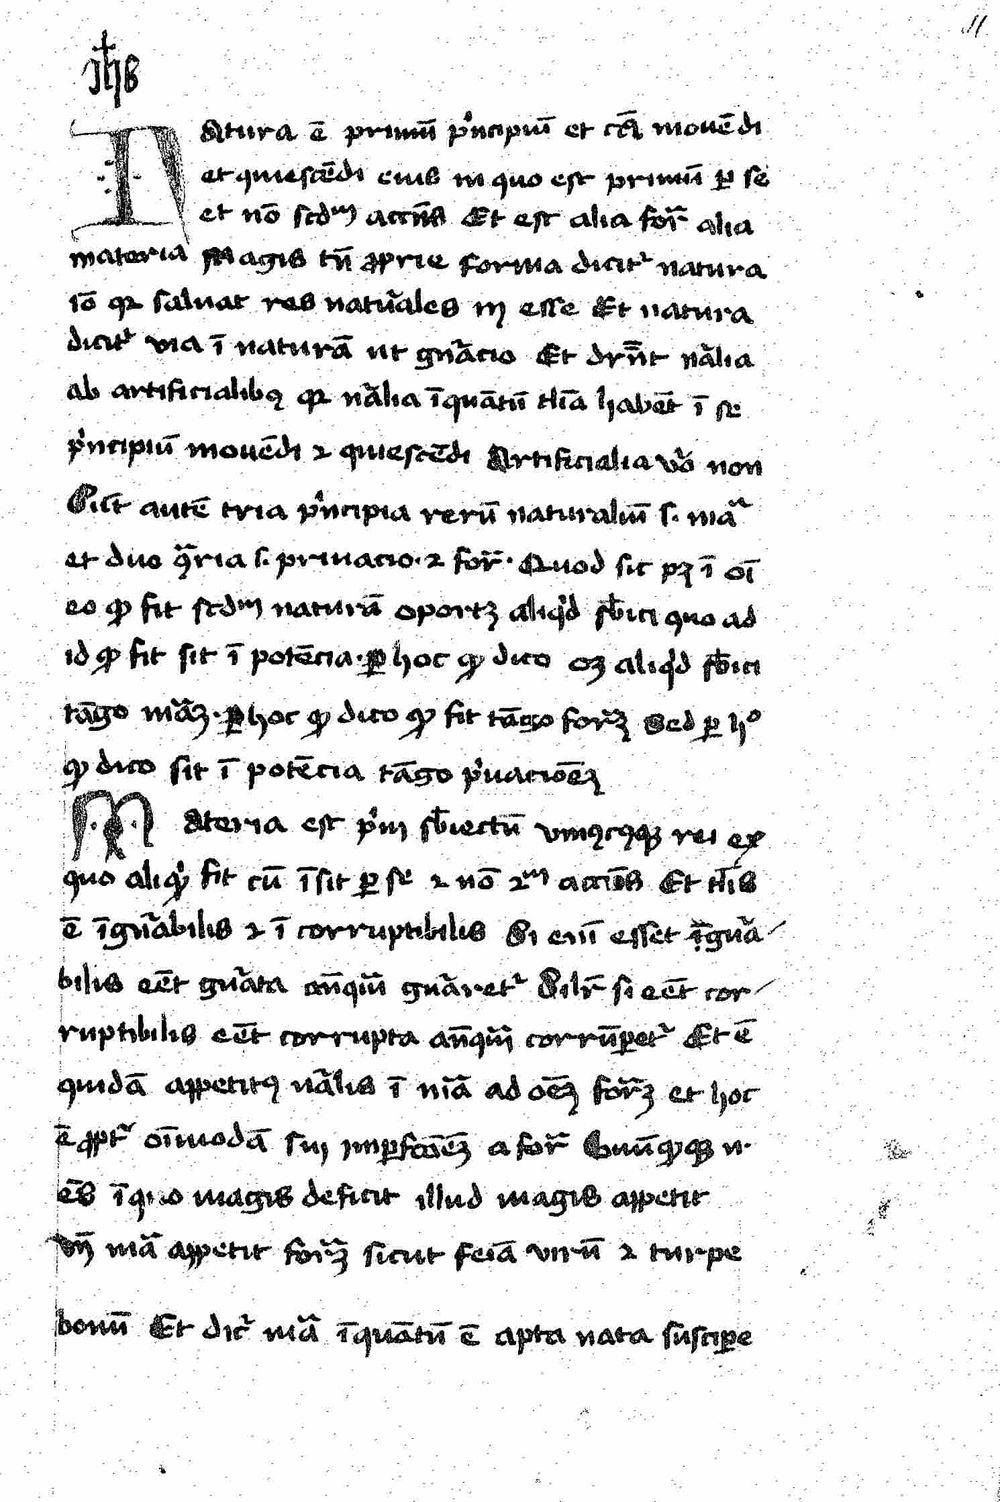 11
jhs
Natura ē primū pͥncipiū et cā movēdi
et quiescēdi eius in quo est primū ꝑ se
et nō scdm accn̄s Et est alia for̄ alia
materia Magis tn̄ ꝓprie forma dicitᷣ natura
iō qꝛ salvat res natuᷣales in esse Et natura
dicitᷣ via ī naturā ut gnᷓacio Et drn̄t nᷓalia
ab artificialibꝰ qꝛ nᷓalia īquātū thᷓa habēt ī se
pͥncipiū movēdi ⁊ quiescēdi Artificialia vͦo non
Sūt autē tria pͥncipia rerū naturaliū s. māᷓ
et duo ↄᷓria s. privacio. ⁊ for̄. Quod sic pꝫ ī oī
eo ꝙ fit scdm naturā oportꝫ aliqͥd sb̄ici quo ad
id ꝙ fit sit ī potēcia. ꝑ hoc ꝙ dico oꝫ aliqͥd sb̄ici
tāgo māꝫ. ꝑ hoc ꝙ dico ꝙ fit tāgo for̄ꝫ Sed ꝑ hͦ
ꝙ dico sit ī potēcia tāgo pͥvacioēꝫ
Materia est pͥm sb̄iectū uniꝰcꝰqꝫ rei ex
quo aliqͥd fit cū īsit ꝑ se ⁊ nō 2m accn̄s Et th̄is
ē īgnᷓabilis ⁊ ī corruptibilis Si enī esset īgnᷓa
bilis eēt gnᷓata an̄qͣm gnᷓaretᷣ Silr̄ si eēt cor
ruptibilis eēt corrupta an̄qͣm corrūꝑetᷣ Et ē
quidā appetitꝰ nᷓalis ī mā ad oēꝫ for̄ꝫ et hoc
ē ꝓptᷣ oīmodā sui imꝑfcōēꝫ a for̄ Unūꝙqꝫ n.
eīs īquo magis deficit illud magis appetit
Vn̄ mā appetit for̄ꝫ sicut feīa virū ⁊ turpe
bonū Et dicᷣ mā īquātū ē apta nata susciꝑe